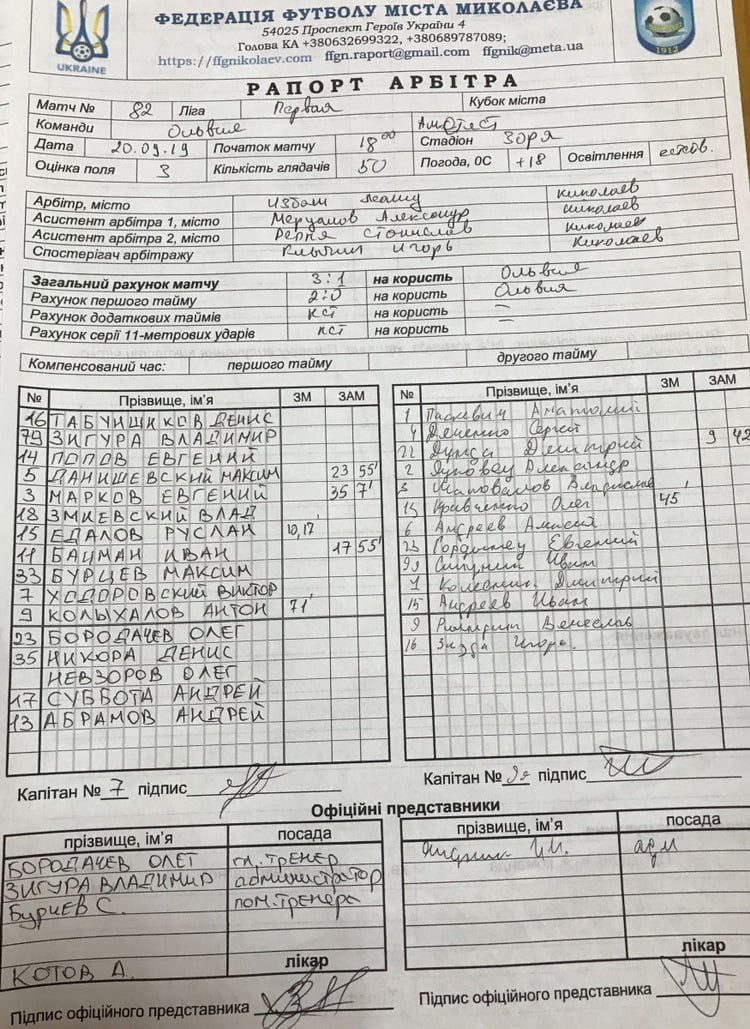 UKRAINE
1912
ФЕДЕРАЦІЯ ФУТБОЛУ МІСТА МИКОЛАЄВА
54025 Проспект Героїв України 4
Голова КА +380632699322, +380689787089;
https://ffgnikolaev.com ffgn.raport@gmail.com ffgnik@meta.ua
РАПОРТ АРБІТРА
Матч № 82 Ліга Первая Кубок міста
Команди Ольвия
Дата 20.09.19 Початок матчу 18 00 Стадіон Зоря
Оцінка поля 3 Кількість глядачів 50 Погода, 0С +18 Освітлення
Арбітр, місто Николаев
Асистент арбітра 1, місто Александр Николаев
Асистент арбітра 2, місто Станислав Николаев
Спостерігач арбітражу Игорь Николаев
Загальний рахунок матчу 3:1 на користь Ольвия
Рахунок першого тайму 2:0 на користь Ольвия
Рахунок додаткових таймів на користь
Рахунок серії 11-метрових ударів на користь
Компенсований час: першого тайму другого тайму
№ Прізвище, ім'я ЗМ ЗАМ
16 ТАБУНЩИКОВ ДЕНИС
79 ЗИГУРА ВЛАДИМИР
14 ПОПОВ ЕВГЕНИЙ
5 ДАНИШЕВСКИЙ МАКСИМ 23 55'
3 МАРКОВ ЕВГЕНИЙ 35 7'
18 ЗМИЕВСКИЙ ВЛАД
15 ЕДАЛОВ РУСЛАН 10,17'
11 БАЦМАН ИВАН 17 55'
33 БУРЦЕВ МАКСИМ
7 ХОДОРОВСКИЙ ВИКТОР
9 КОЛЫХАЛОВ АНТОН 71'
23 БОРОДАЧЕВ ОЛЕГ
35 НИКОРА ДЕНИС
НЕВЗОРОВ ОЛЕГ
17 СУББОТА АНДРЕЙ
13 АБРАМОВ АНДРЕЙ
Капітан № 7 підпис
№ Прізвище, ім'я ЗМ ЗАМ
1 Паскевич Анатолий
4 Сергей
22 Дмитрий 9 42
2 Александр
3 Шаповалов Владислав
13 Кравченко Олег 45'
6 Андреев Алексей
23 Гордиенко Евгений
99 Иван
7 Дмитрий
15 Андреев Иван
9 Венеслав
16 Игорь
Капітан № 99 підпис
Офіційні представники
прізвище, ім'я посада
БОРОДАЧЕВ ОЛЕГ гл. тренер
ЗИГУРА ВЛАДИМИР администратор
Бурцев С. пом. тренера
лікар
КОТОВ А.
Підпис офіційного представника
прізвище, ім'я посада
адм
лікар
Підпис офіційного представника